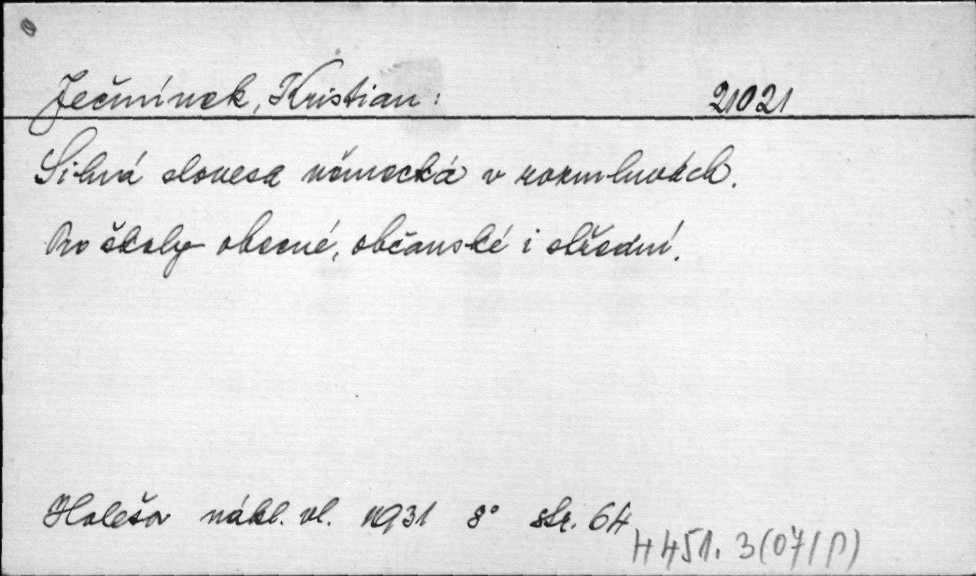 Ječmínek, Kristian: 21021
Silná slovesa německá v rozmluvách.
Pro školy obecné, občanské i střední.
Holešov nákl. vl. 1931 8° str. 64
H 451. 3(07/P)